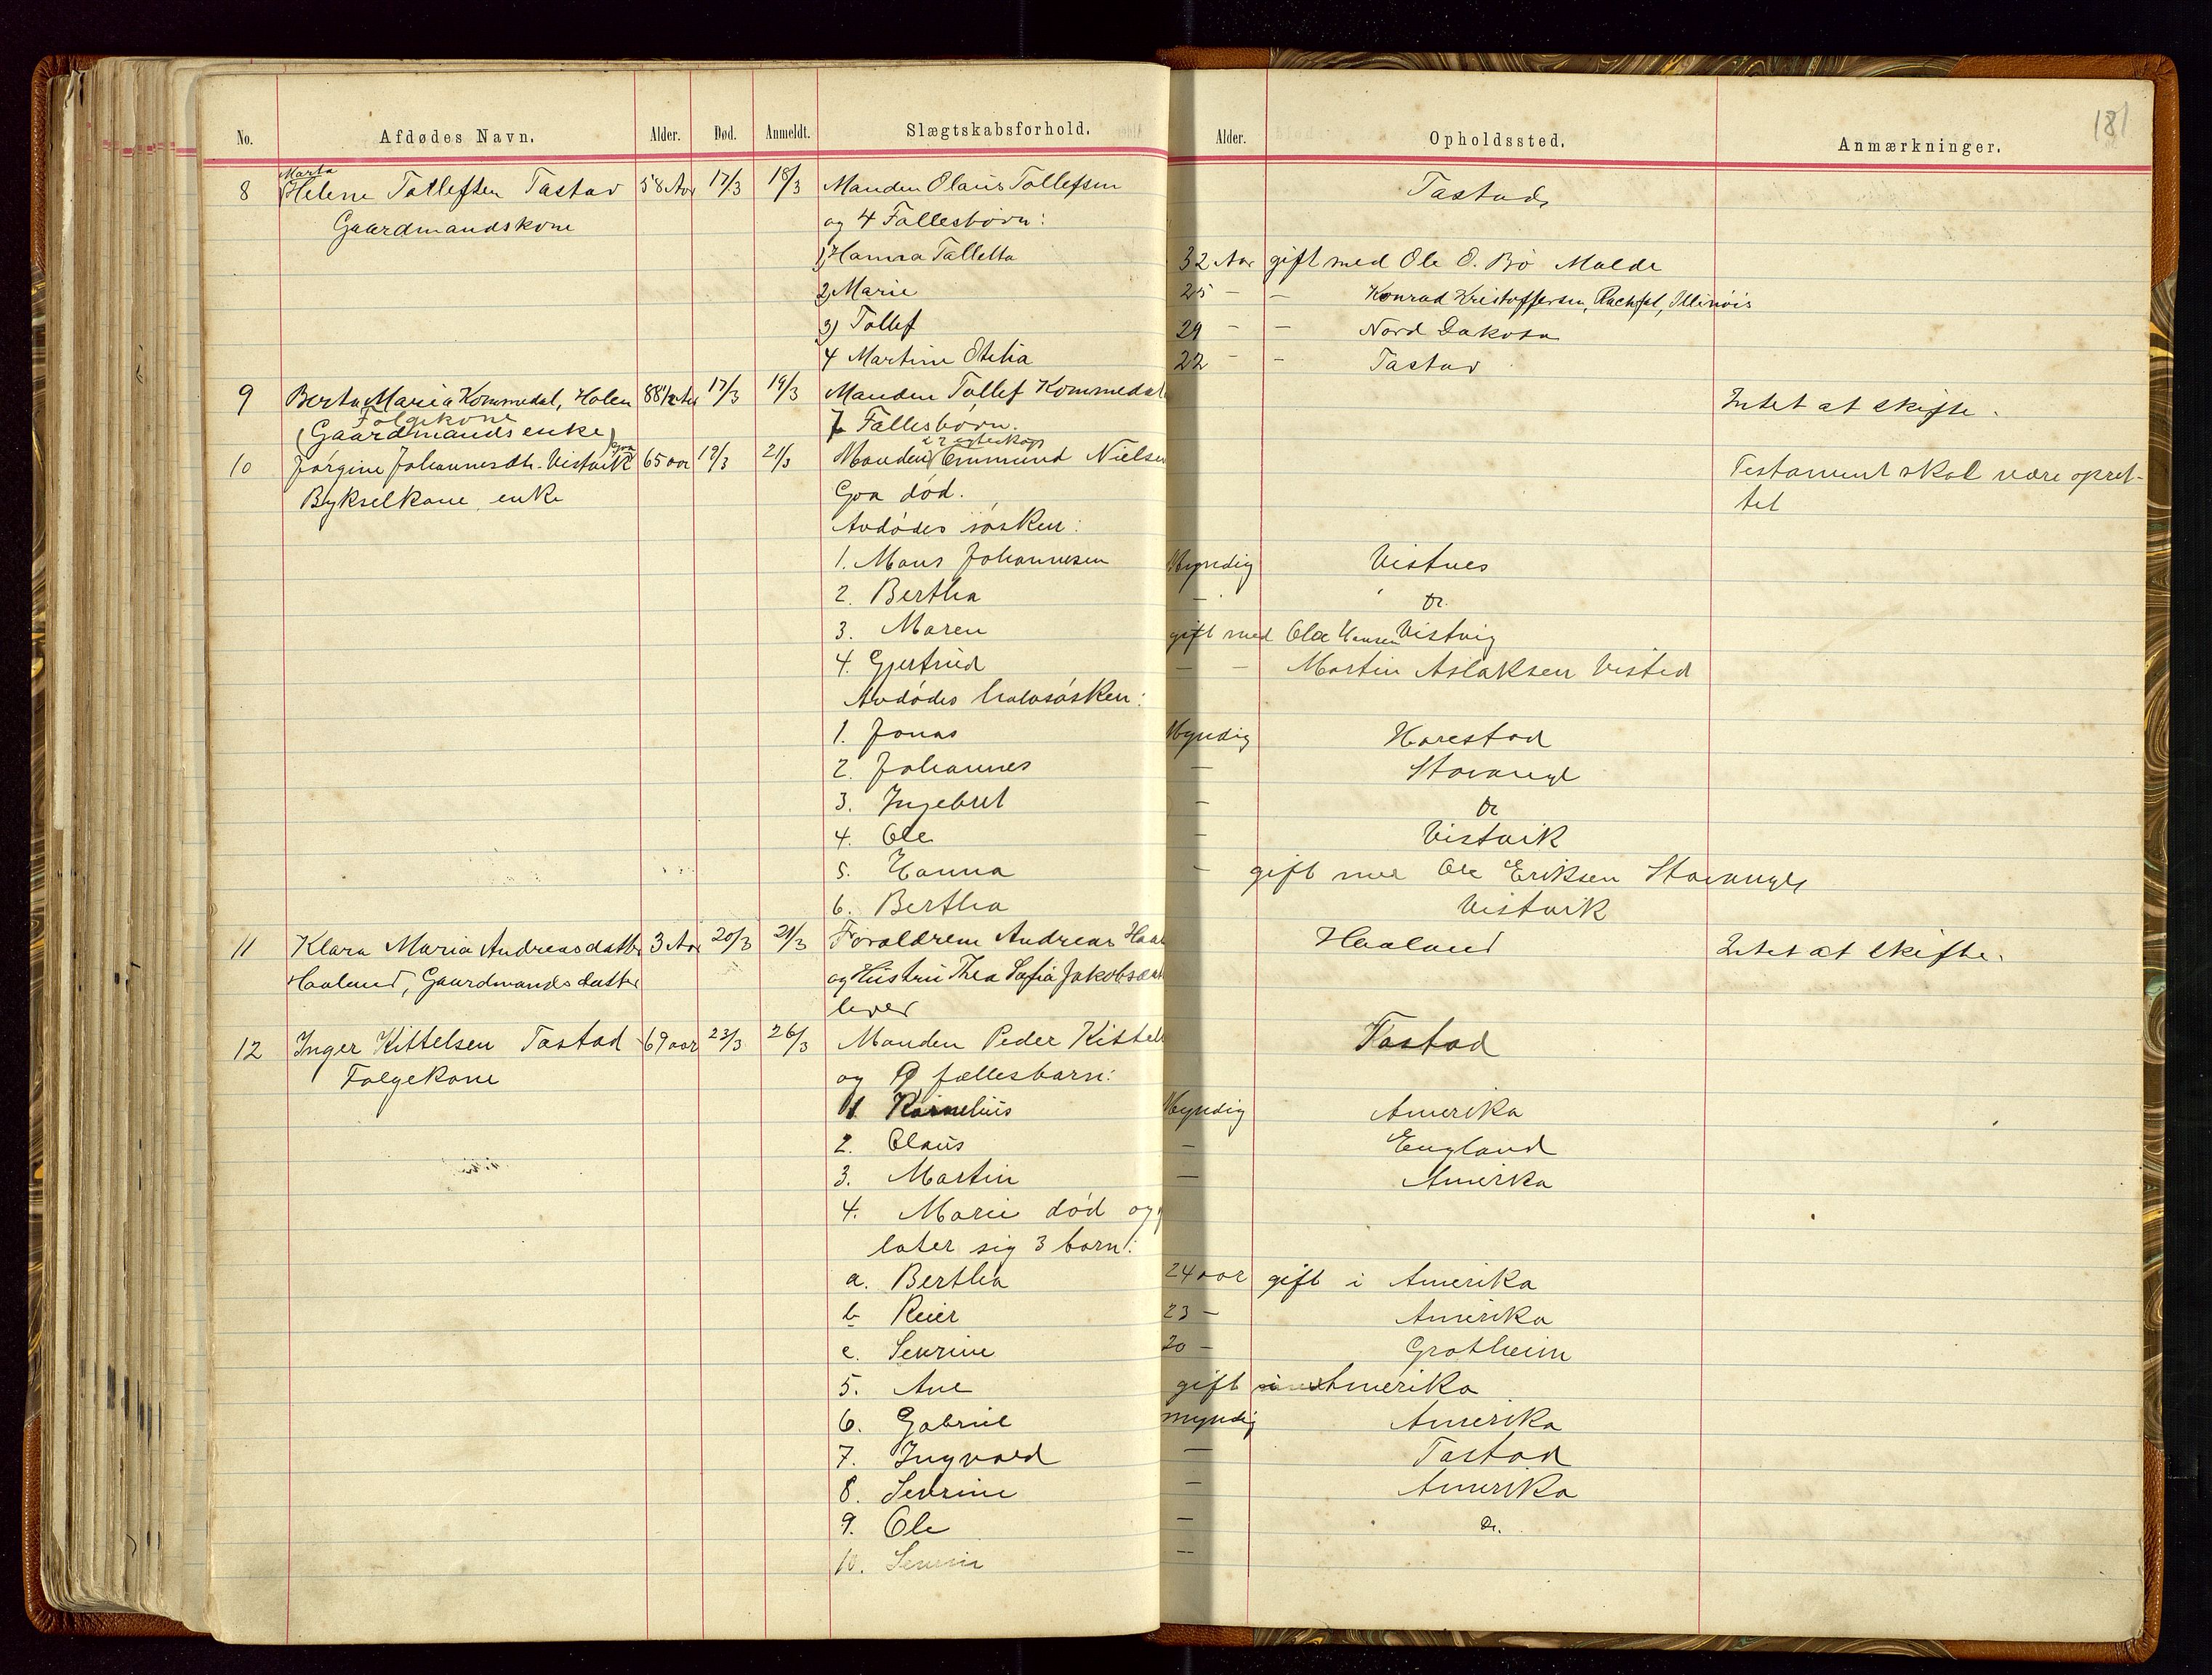 181
No. Afdødes Navn. Alder. Død. Anmeldt. Slægtskabsforhold. Alder. Opholdssted. Anmærkninger.
Marta
8 Helene Tollefsen Tastad 58 Aar 17/3 18/3 Manden Olaus Tollefsen Tastad
Gaardmandskone og 4 Fællesbørn:
1) Hanna Talletta 32 Aar gift med Ole O. Bø Malde
2) Marie 25 – – Konrad Kristoffersen, Illinois
3) Tollef 29 – – Nord Dakota
4 Martine Otelia 22 – – Tastad
9 Berta Maria Kommedal, Holen 88 1/2 Aar 17/3 19/3 Manden Tollef Kommedal Intet at skifte.
Følgekone
(Gaardmandsenke) 7 Fællesbørn.
10 Jørgine Johannesdtr. Vistvik 65 aar 19/3 21/3 Manden Emmund Nielsen Testament skal være opret-
Bykselkone enke Goa død. tet
Avdødes søsken:
1. Mons Johannesen Myndig Vistnes
2. Bertha – Do.
3. Maren gift med Ole Hansen Vistvig
4. Gjertrud – – Martin Aslaksen Visted
Avdødes halvsøsken:
1. Jonas Myndig Harestad
2. Johannes – Stavanger
3. Ingebret – Do
4. Ole – Vistvik
5. Hanna – gift med Ole Eriksen Stavanger
6. Bertha Vistvik
11 Klara Maria Andreasdatter 3 Aar 20/3 21/3 Forældrene Andreas Haaland Haaland Intet at skifte.
Haaland, Gaardmandsdatter og Hustru Thea Sofia Jakobsdatter
lever
12 Inger Kittelsen Tastad 69 aar 23/3 26/3 Manden Peder Kittelsen Tastad
Følgekone og 9 fællesbarn:
1. Kornelius Myndig Amerika
2. Olaus – England
3. Martin – Amerika
4. Marie død og
later sig 3 barn:
a. Bertha 24 aar gift i Amerika
b. Reier 23 – Amerika
c. Severine 20 – Grotheim
5. Ane gift i Amerika
6. Gabriel myndig Amerika
7. Ingvald – Tastad
8. Severine – Amerika
9. Ole – Do.
10. Severin –